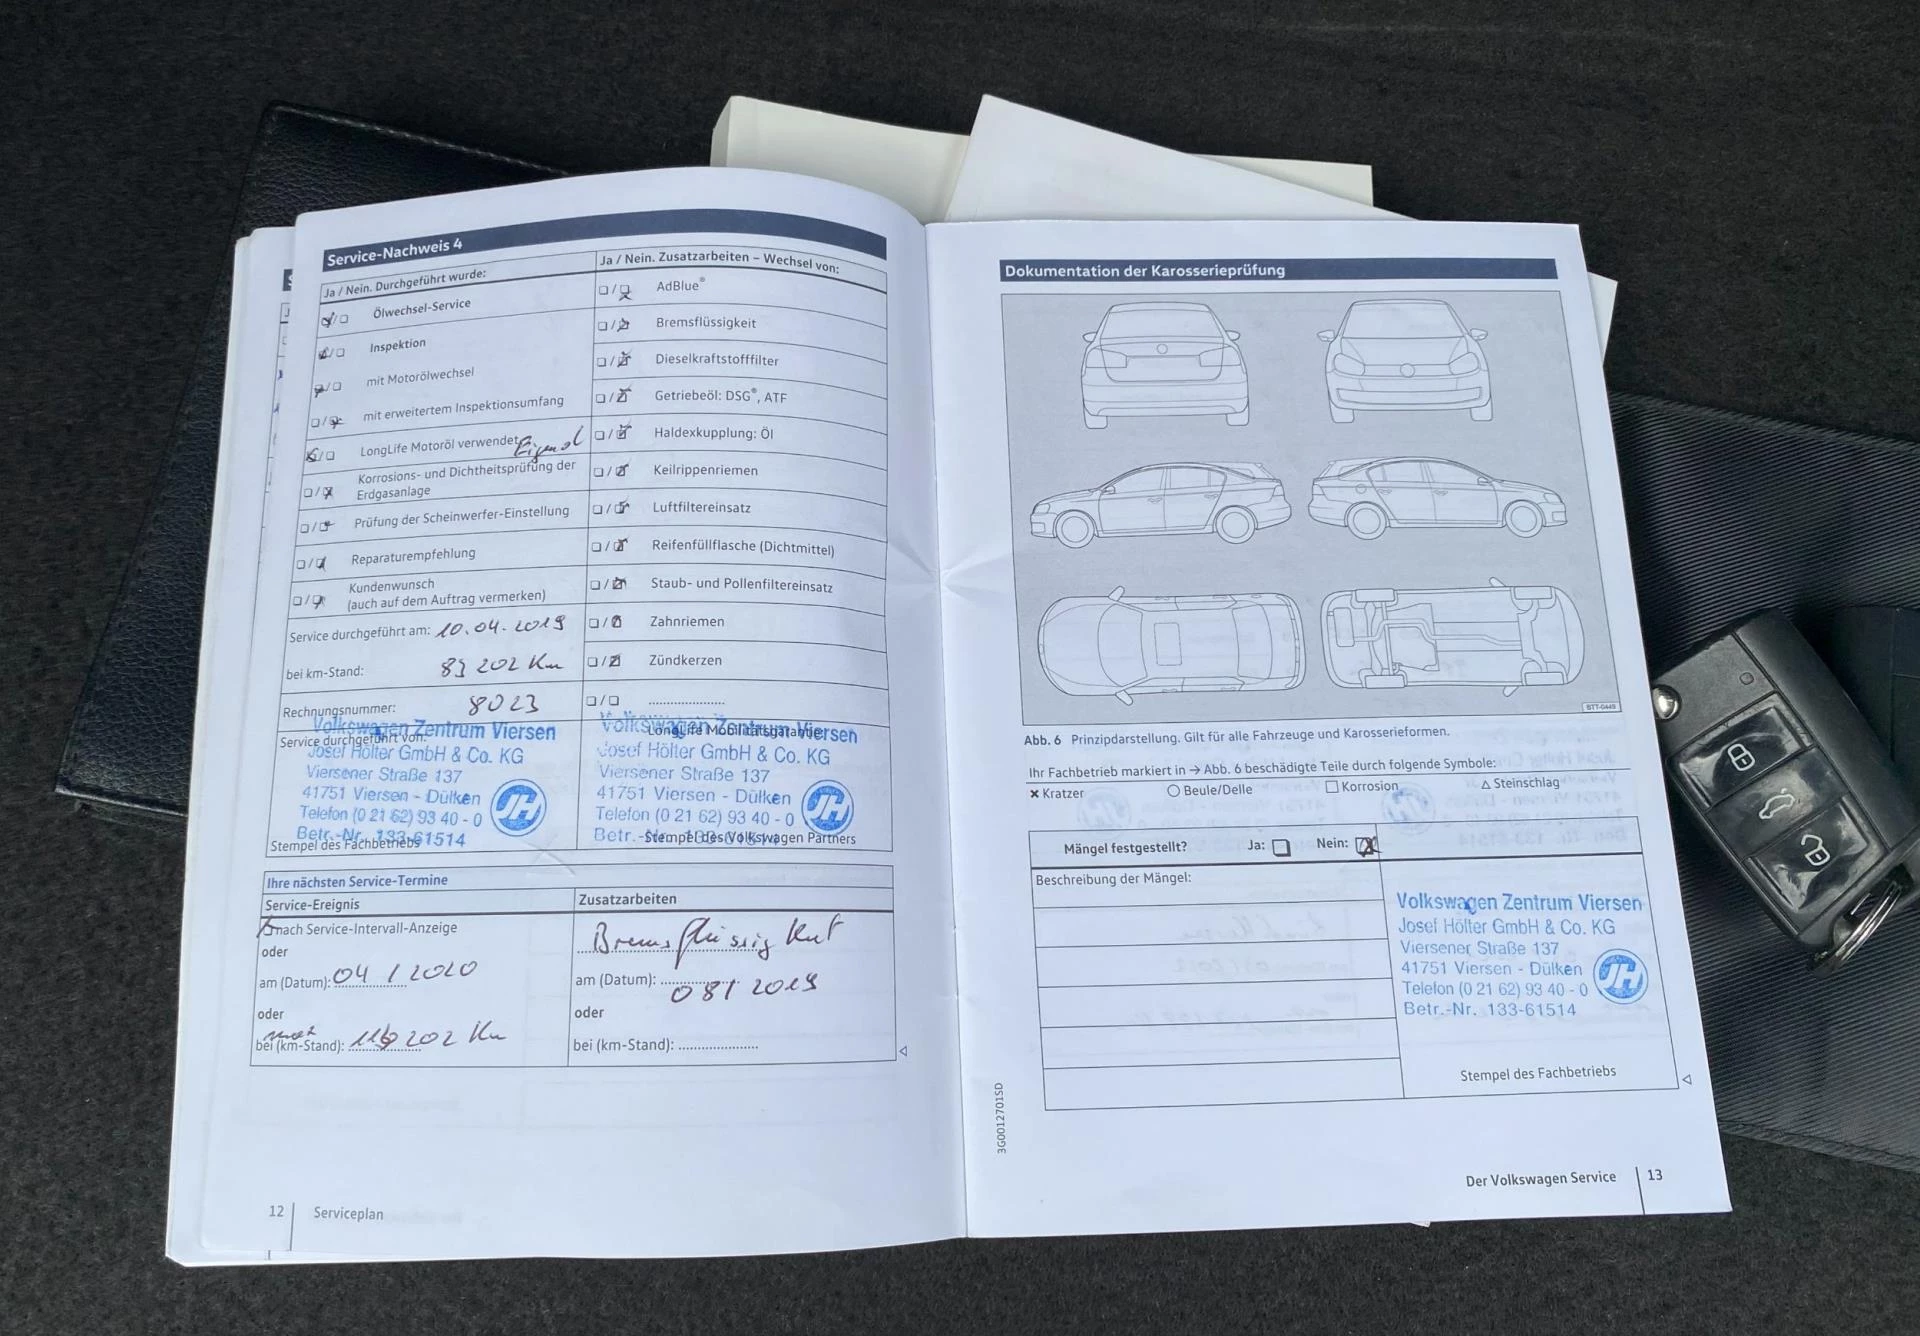 Service-Nachweis 4
Ja / Nein. Durchgeführt wurde:
Ölwechsel-Service
Inspektion
mit Motorölwechsel
mit erweitertem Inspektionsumfang
LongLife Motoröl verwendet
Korrosions- und Dichtheitsprüfung der
Erdgasanlage
Prüfung der Scheinwerfer-Einstellung
Reparaturempfehlung
Kundenwunsch
(auch auf dem Auftrag vermerken)
Service durchgeführt am: 10.04.2019
bei km-Stand: 89 202 Km
Rechnungsnummer: 8023
Ja / Nein. Zusatzarbeiten – Wechsel von:
AdBlue®
Bremsflüssigkeit
Dieselkraftstofffilter
Getriebeöl: DSG®, ATF
Haldexkupplung: Öl
Keilrippenriemen
Luftfiltereinsatz
Reifenfüllflasche (Dichtmittel)
Staub- und Pollenfiltereinsatz
Zahnriemen
Zündkerzen
Service durchgeführt von:
Volkswagen Zentrum Viersen
Josef Hölter GmbH & Co. KG
Viersener Straße 137
41751 Viersen - Dülken
Telefon (0 21 62) 93 40 - 0
Betr.-Nr. 133-61514
JH
Stempel des Fachbetriebs
LongLife Mobilitätsgarantie
Volkswagen Zentrum Viersen
Josef Hölter GmbH & Co. KG
Viersener Straße 137
41751 Viersen - Dülken
Telefon (0 21 62) 93 40 - 0
Betr.-Nr. 133-61514
JH
Stempel des Volkswagen Partners
Ihre nächsten Service-Termine
Service-Ereignis
nach Service-Intervall-Anzeige
oder
am (Datum): 04 / 2020
oder
bei (km-Stand): 202 Km
Zusatzarbeiten
Bremsflüssigkeit
am (Datum): 08 / 2019
oder
bei (km-Stand):
12 Serviceplan
Dokumentation der Karosserieprüfung
BTT-0449
Abb. 6 Prinzipdarstellung. Gilt für alle Fahrzeuge und Karosserieformen.
Ihr Fachbetrieb markiert in → Abb. 6 beschädigte Teile durch folgende Symbole:
× Kratzer ○ Beule/Delle □ Korrosion △ Steinschlag
Mängel festgestellt? Ja: Nein:
Beschreibung der Mängel:
Volkswagen Zentrum Viersen
Josef Hölter GmbH & Co. KG
Viersener Straße 137
41751 Viersen - Dülken
Telefon (0 21 62) 93 40 - 0
Betr.-Nr. 133-61514
JH
Stempel des Fachbetriebs
3G0012701SD
Der Volkswagen Service 13